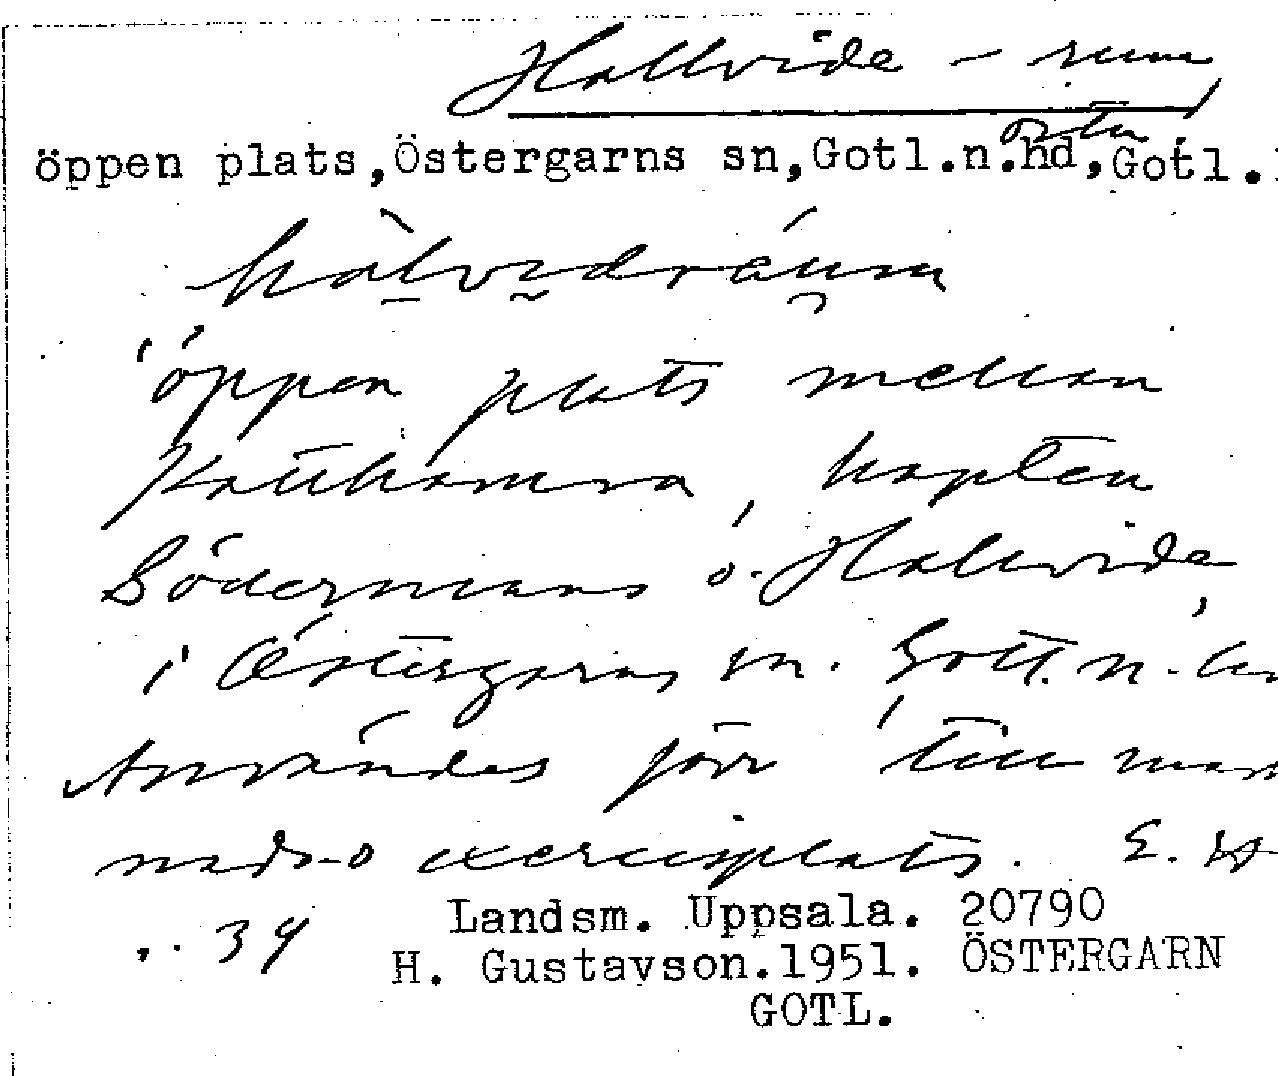 Hallvide - rum
östra
öppen plats,Östergarns sn,Gotl.n.hd,Gotl.
hàlvidráum
öppen plats mellan
Katthamra, kapten
Södermans o. Hallvide,
i Östergarns sn. Gotl. n.
Användes förr till mark
nads- o exercisplats. E.
34 Landsm. Uppsala. 20790
H. Gustavson.1951. ÖSTERGARN
GOTL.